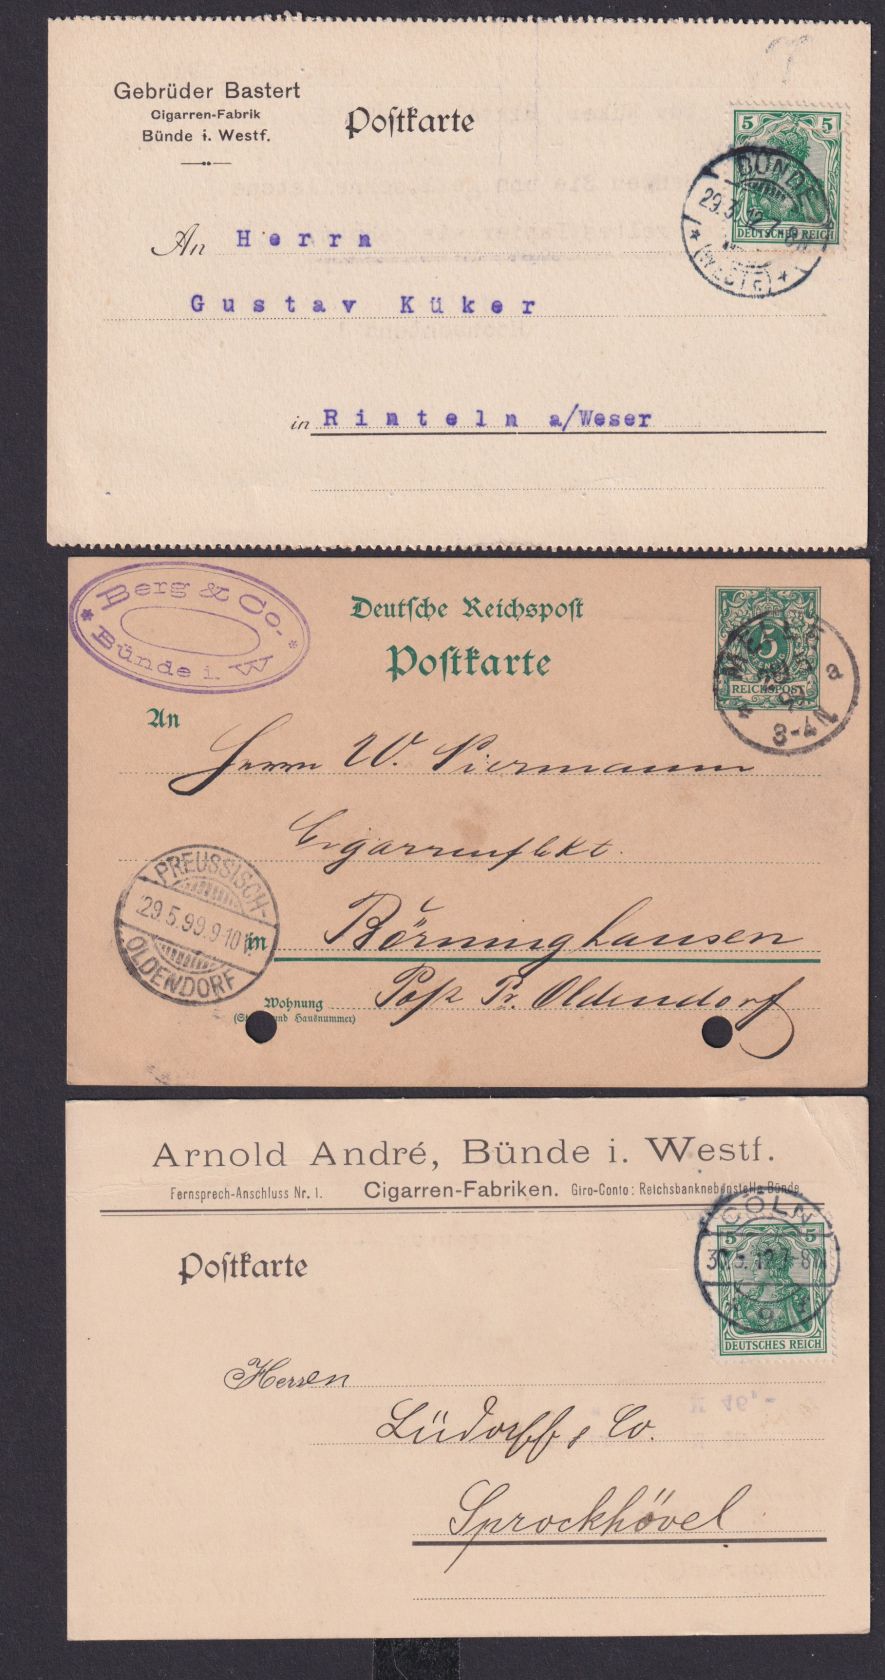 Gebrüder Bastert
Cigarren-Fabrik
Bünde i. Westf.
Postkarte
5 5
DEUTSCHES REICH
BÜNDE
29.3.12.7-8N
* (WESTF.) *
An Herrn
Gustav Küker
in Rinteln a/Weser
Berg & Co.
* Bünde i. W *
Deutsche Reichspost
Postkarte
5
REICHSPOST
MELLE
3-4N
a
An
Herrn W. Niermann
Cigarrenfbkt.
in Börninghausen
Wohnung Post Pr. Oldendorf
(St und Hausnummer)
PREUSSISCH-
29.5.99.9-10
OLDENDORF
Arnold André, Bünde i. Westf.
Fernsprech-Anschluss Nr. 1. Cigarren-Fabriken. Giro-Conto: Reichsbanknebenstelle Bünde
Postkarte
5 5
DEUTSCHES REICH
CÖLN
12.7-8N
Herren
Lüdorff & Co.
Sprockhövel